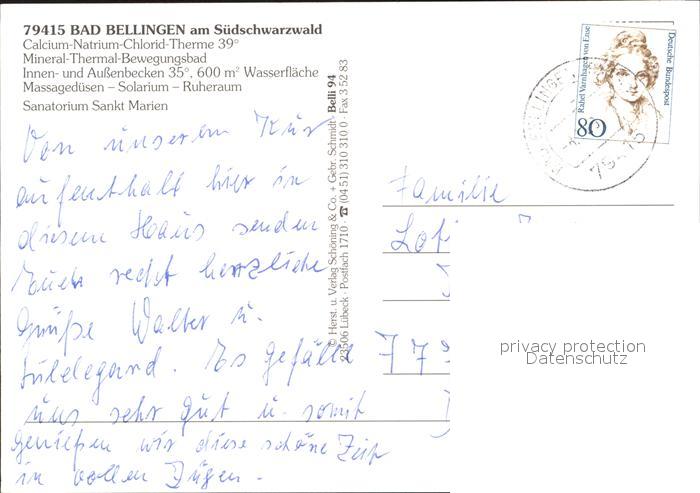 79415 BAD BELLINGEN am Südschwarzwald
Calcium-Natrium-Chlorid-Therme 39°
Mineral-Thermal-Bewegungsbad
Innen- und Außenbecken 35°, 600 m² Wasserfläche
Massagedüsen – Solarium – Ruheraum
Sanatorium Sankt Marien
Von unserem Kur
aufenthalt hier in
diesem Haus senden
Euch recht herzliche
Grüße Walter u.
Hildegard. Es gefällt
uns sehr gut u. somit
genießen wir diese schöne Zeit
in vollen Zügen.
© Herst. u. Verlag Schöning & Co. + Gebr. Schmidt Belli 94
23506 Lübeck · Postfach 1710 · ☎ (04 51) 310 310 0 · Fax 3 52 83
Rahel Varnhagen von Ense
Deutsche Bundespost
80
BAD BELLINGEN
79415
Familie
77
privacy protection
Datenschutz